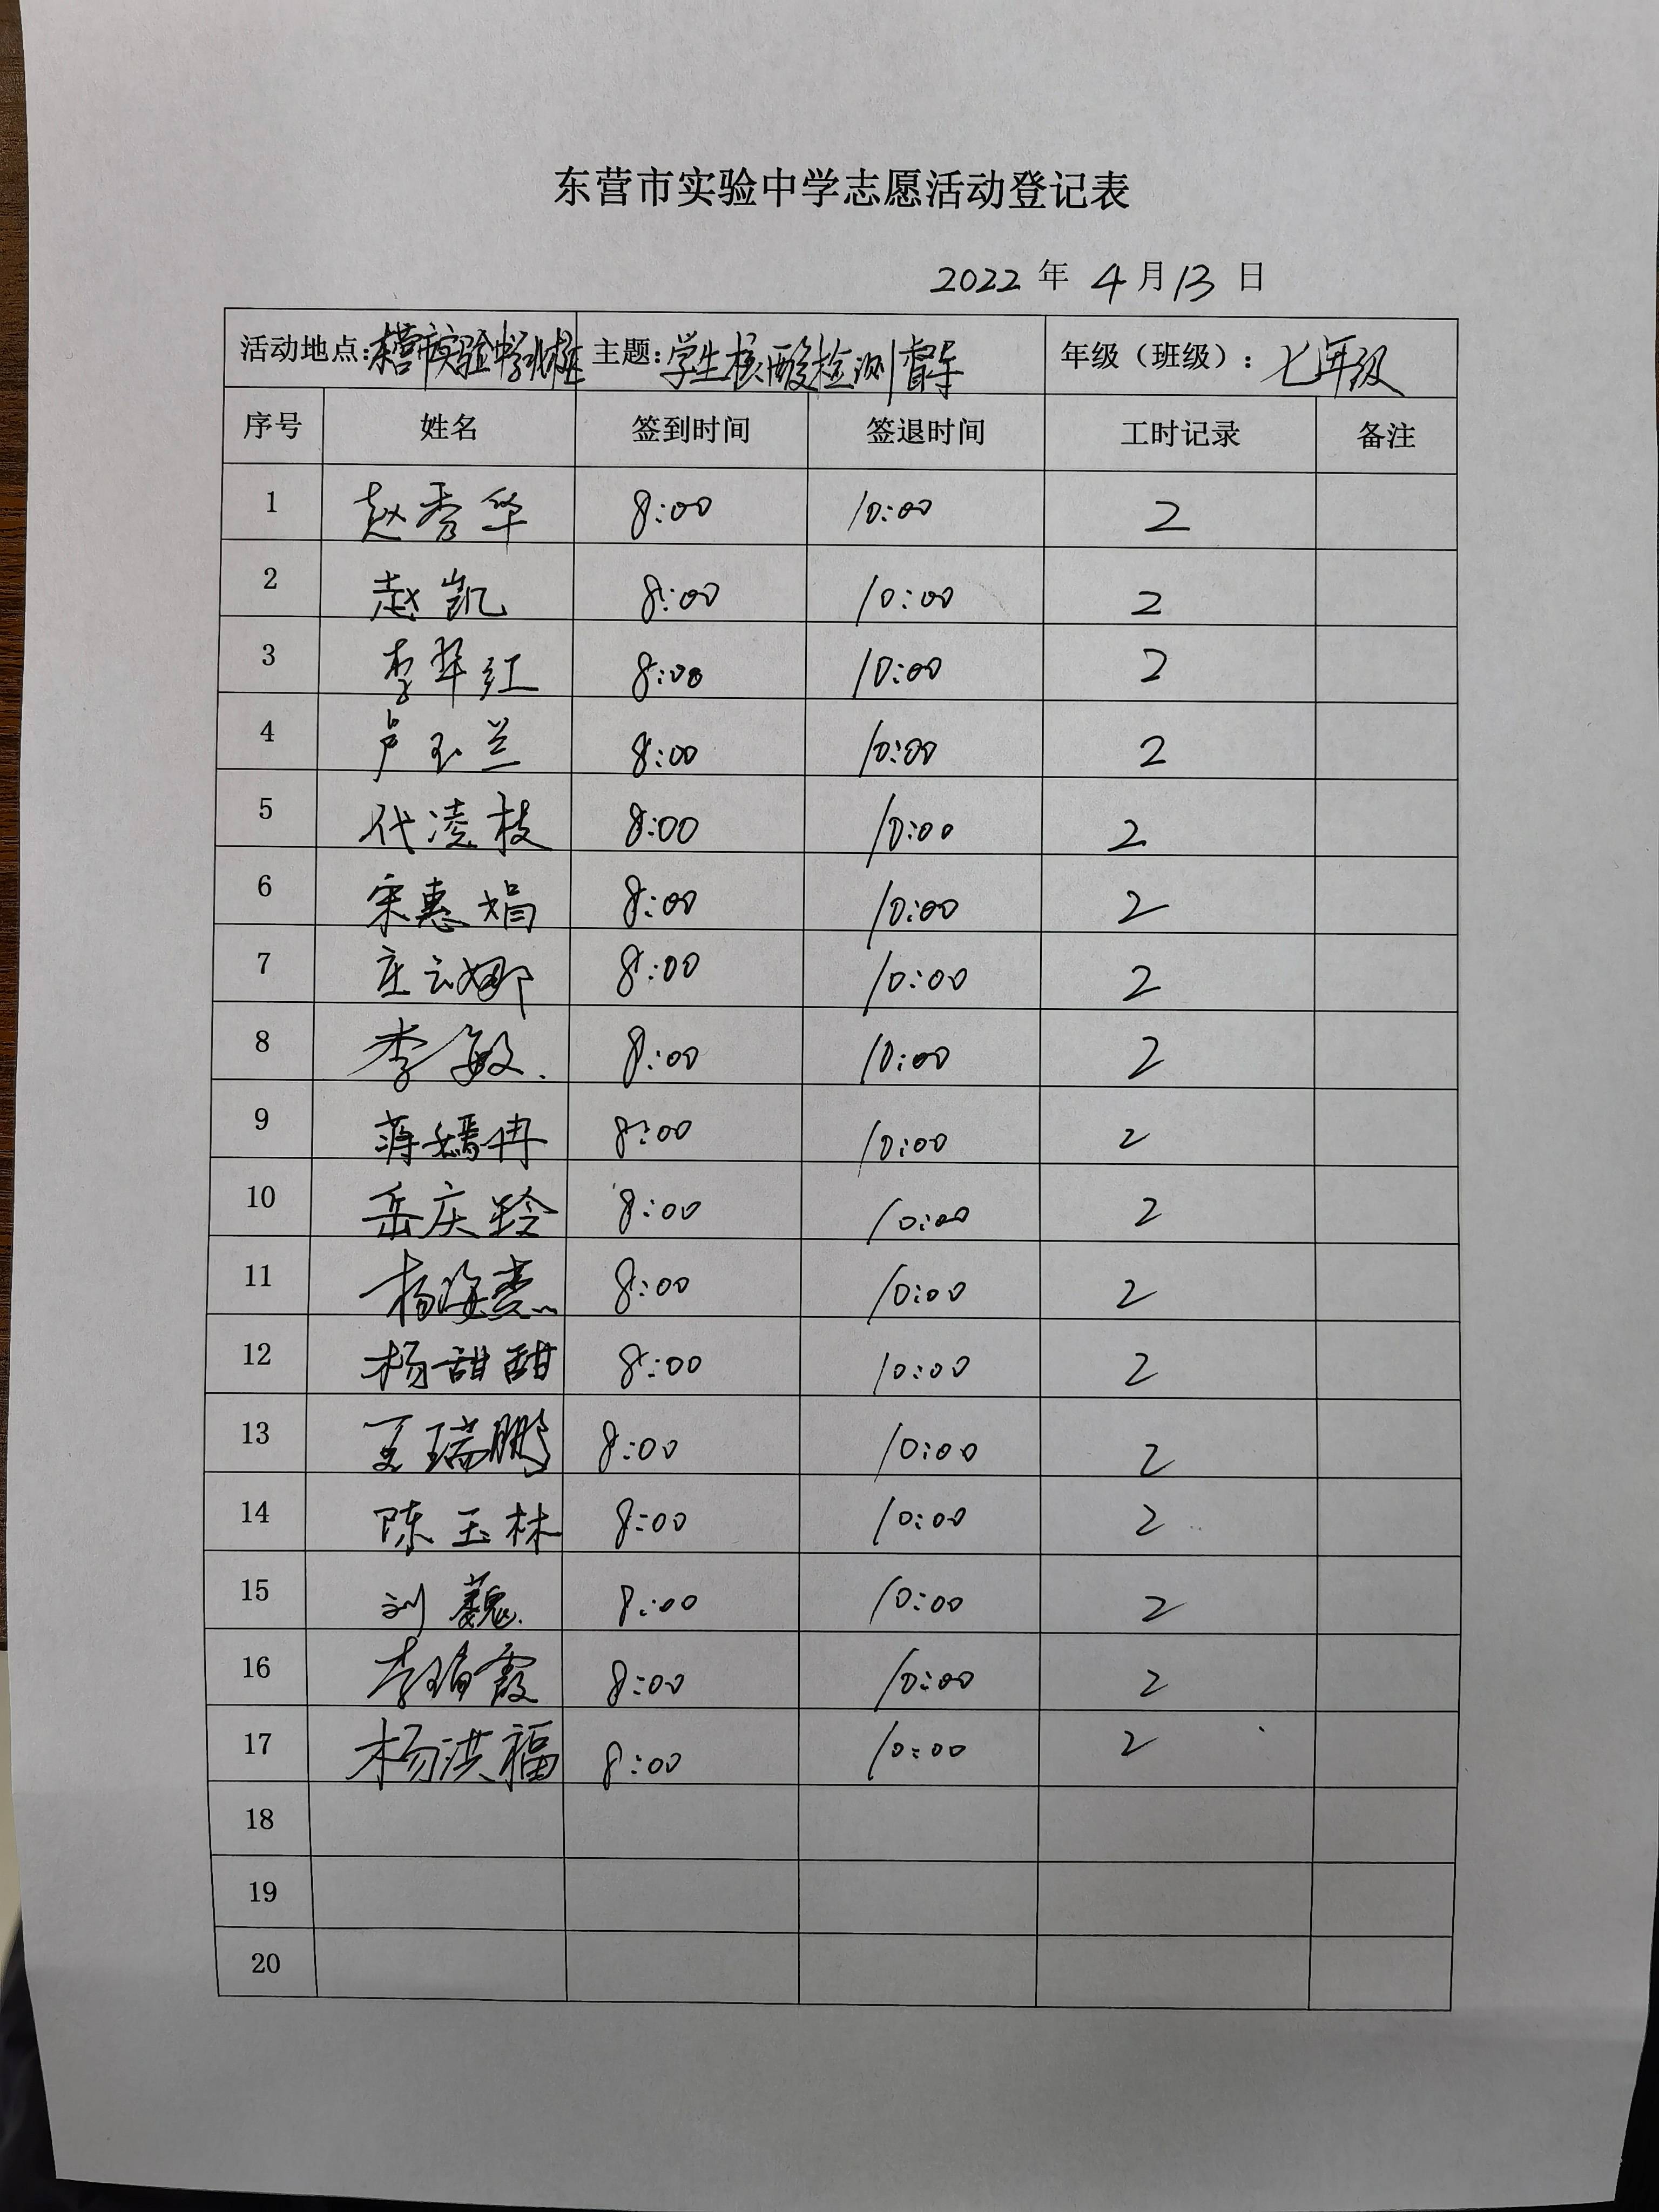 东营市实验中学志愿活动登记表
2022 年 4 月 13 日
活动地点:东营市实验中学北校区 主题:学生核酸检测督导 年级（班级）: 七年级
序号 姓名 签到时间 签退时间 工时记录 备注
1 赵秀华 8:00 10:00 2
2 赵凯 8:00 10:00 2
3 李翠红 8:00 10:00 2
4 卢玉兰 8:00 10:00 2
5 代凌枝 8:00 10:00 2
6 宋惠娟 8:00 10:00 2
7 庄云娜 8:00 10:00 2
8 李敏. 8:00 10:00 2
9 蒋嫣冉 8:00 10:00 2
10 岳庆玲 8:00 10:00 2
11 杨海 8:00 10:00 2
12 杨甜甜 8:00 10:00 2
13 王瑞鹏 8:00 10:00 2
14 陈玉林 8:00 10:00 2
15 刘巍 8:00 10:00 2
16 李 霞 8:00 10:00 2
17 杨洪福 8:00 10:00 2
18
19
20